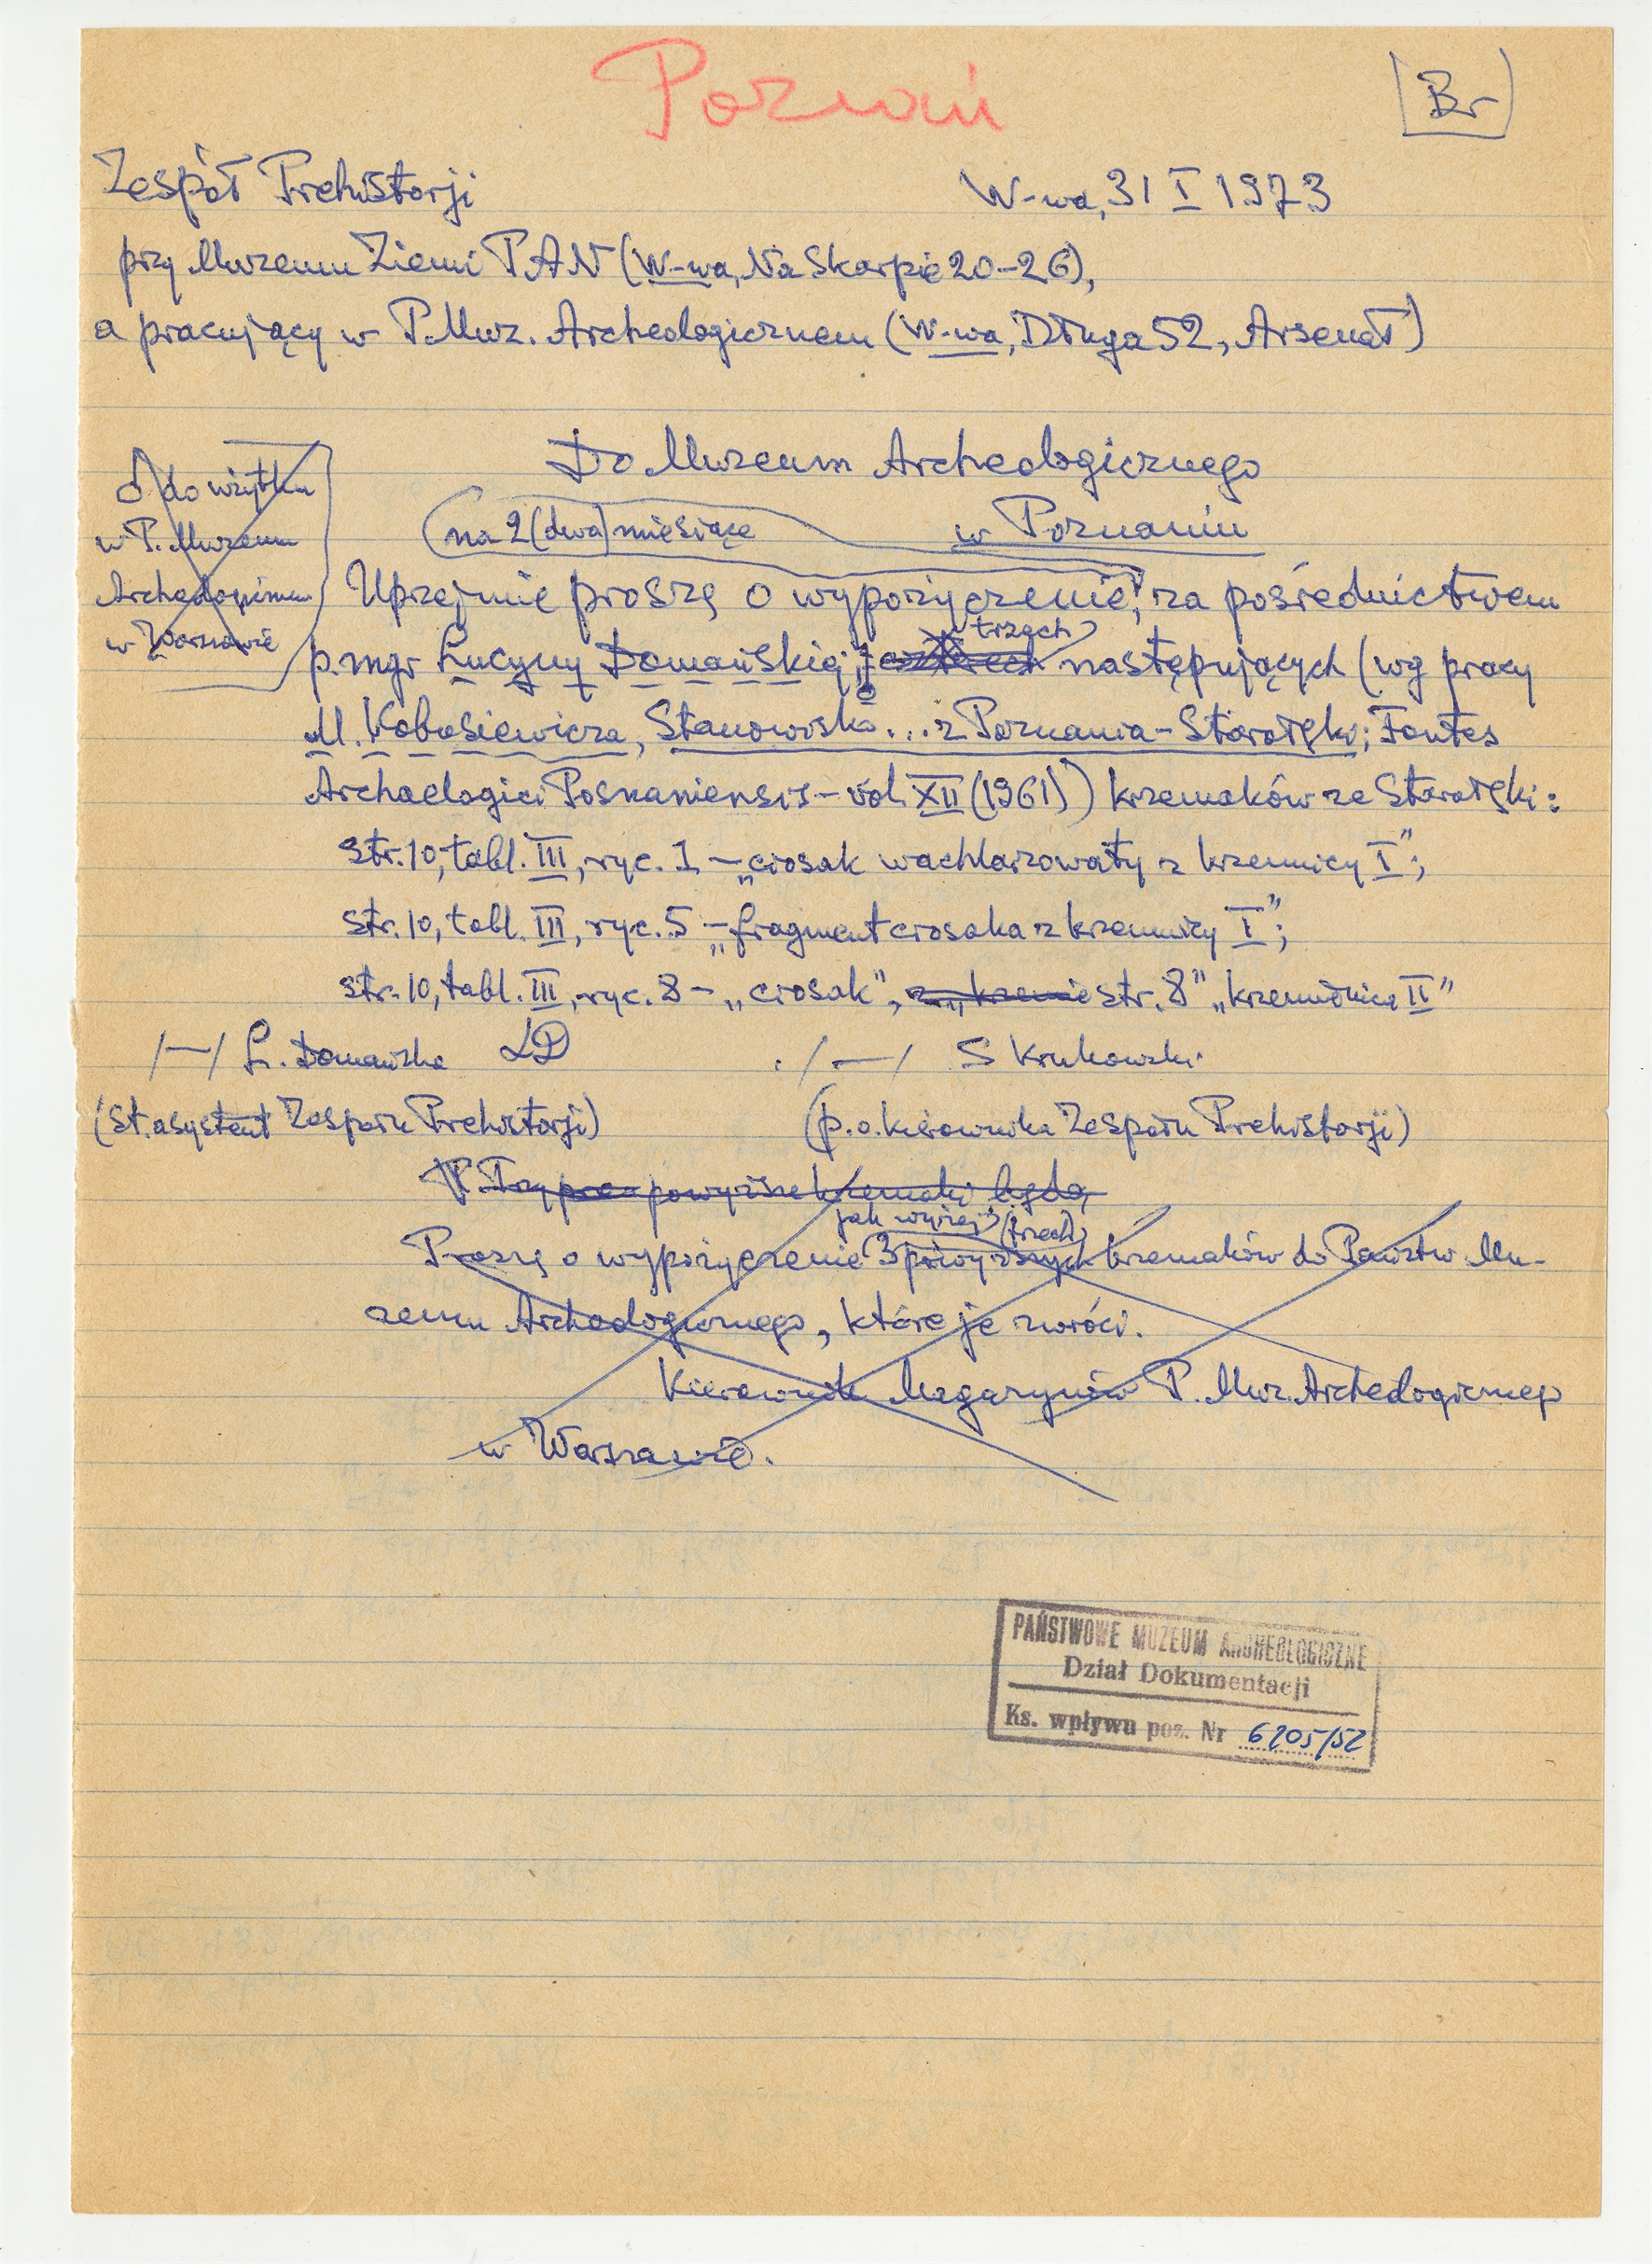 Poznań
Br
Zespół Prehistorji
W-wa, 31 I 1973
przy Muzeum Ziemi PAN (W-wa, Na Skarpie 20-26),
a pracujący w P. Muz. Archeologicznem (W-wa, Długa 52, Arsenał)
Do Muzeum Archeologicznego
w Poznaniu
do użytku
w P. Muzeum
Archeologicznem
w Warszawie
na 2 (dwa) miesiące
Uprzejmie proszę o wypożyczenie, za pośrednictwem
trzech
p. mgr Łucyny Domańskiej, czterech następujących (wg pracy
M. Kobusiewicza, Stanowisko... z Poznania-Starołęki; Fontes
Archaelogici Posnaniensis - vol. XII (1961)) krzemaków ze Starołęki:
str. 10, tabl. III, ryc. 1 - „ciosak wachlarzowaty z krzemnicy I";
str. 10, tabl. III, ryc. 5 - „fragment ciosaka z krzemnicy I";
str. 10, tabl. III, ryc. 8 - „ciosak", z „krzemie str. 8" „krzemionica II"
/—/ Ł. Domańska ŁD
/—/ S Krukowski
(st. asystent Zespołu Prehistorji)
(p.o. kierownika Zespołu Prehistorji)
P. Trzy powyższe krzemaki będą
jak wyżej (trzech)
Proszę o wypożyczenie 3 powyższych krzemaków do Państw. Mu-
zeum Archeologicznego, które je zwróci.
Kierownik Magazynów P. Muz. Archeologicznego
w Warszawie.
PAŃSTWOWE MUZEUM ARCHEOLOGICZNE
Dział Dokumentacji
Ks. wpływu poz. Nr 6205/52